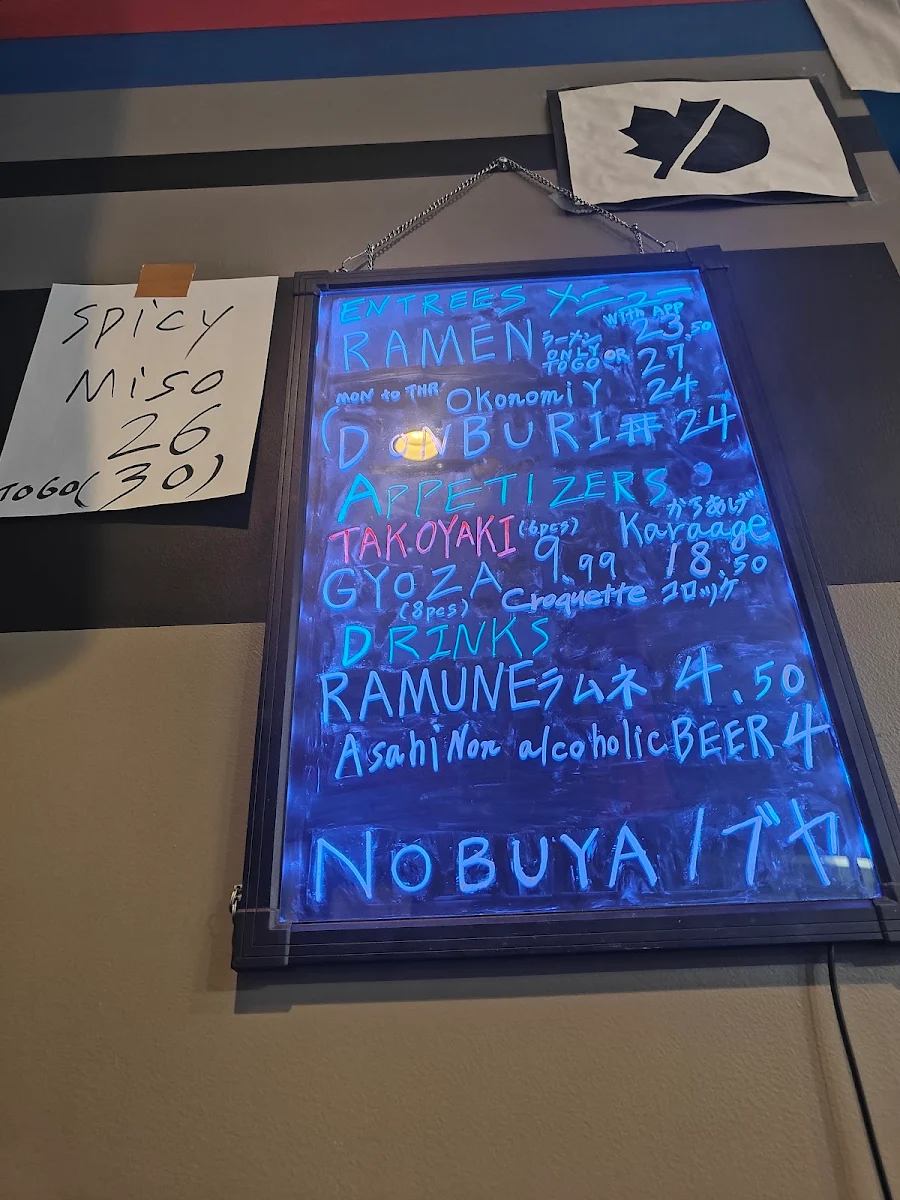 SPICY
MISO
26
TOGO(30)
ENTREES メニュー
WITH APP
RAMEN ラーメン 23.50
ONLY TOGO OR 27
MON to THR Okonomiy 24
(DONBURI 丼 24
APPETIZERS
からあげ
TAKOYAKI (6pcs) Karaage
GYOZA 9.99 18.50
(8pcs) Croquette コロッケ
DRINKS
RAMUNE ラムネ 4.50
Asahi Non alcoholic BEER 4
NOBUYA ノブヤ